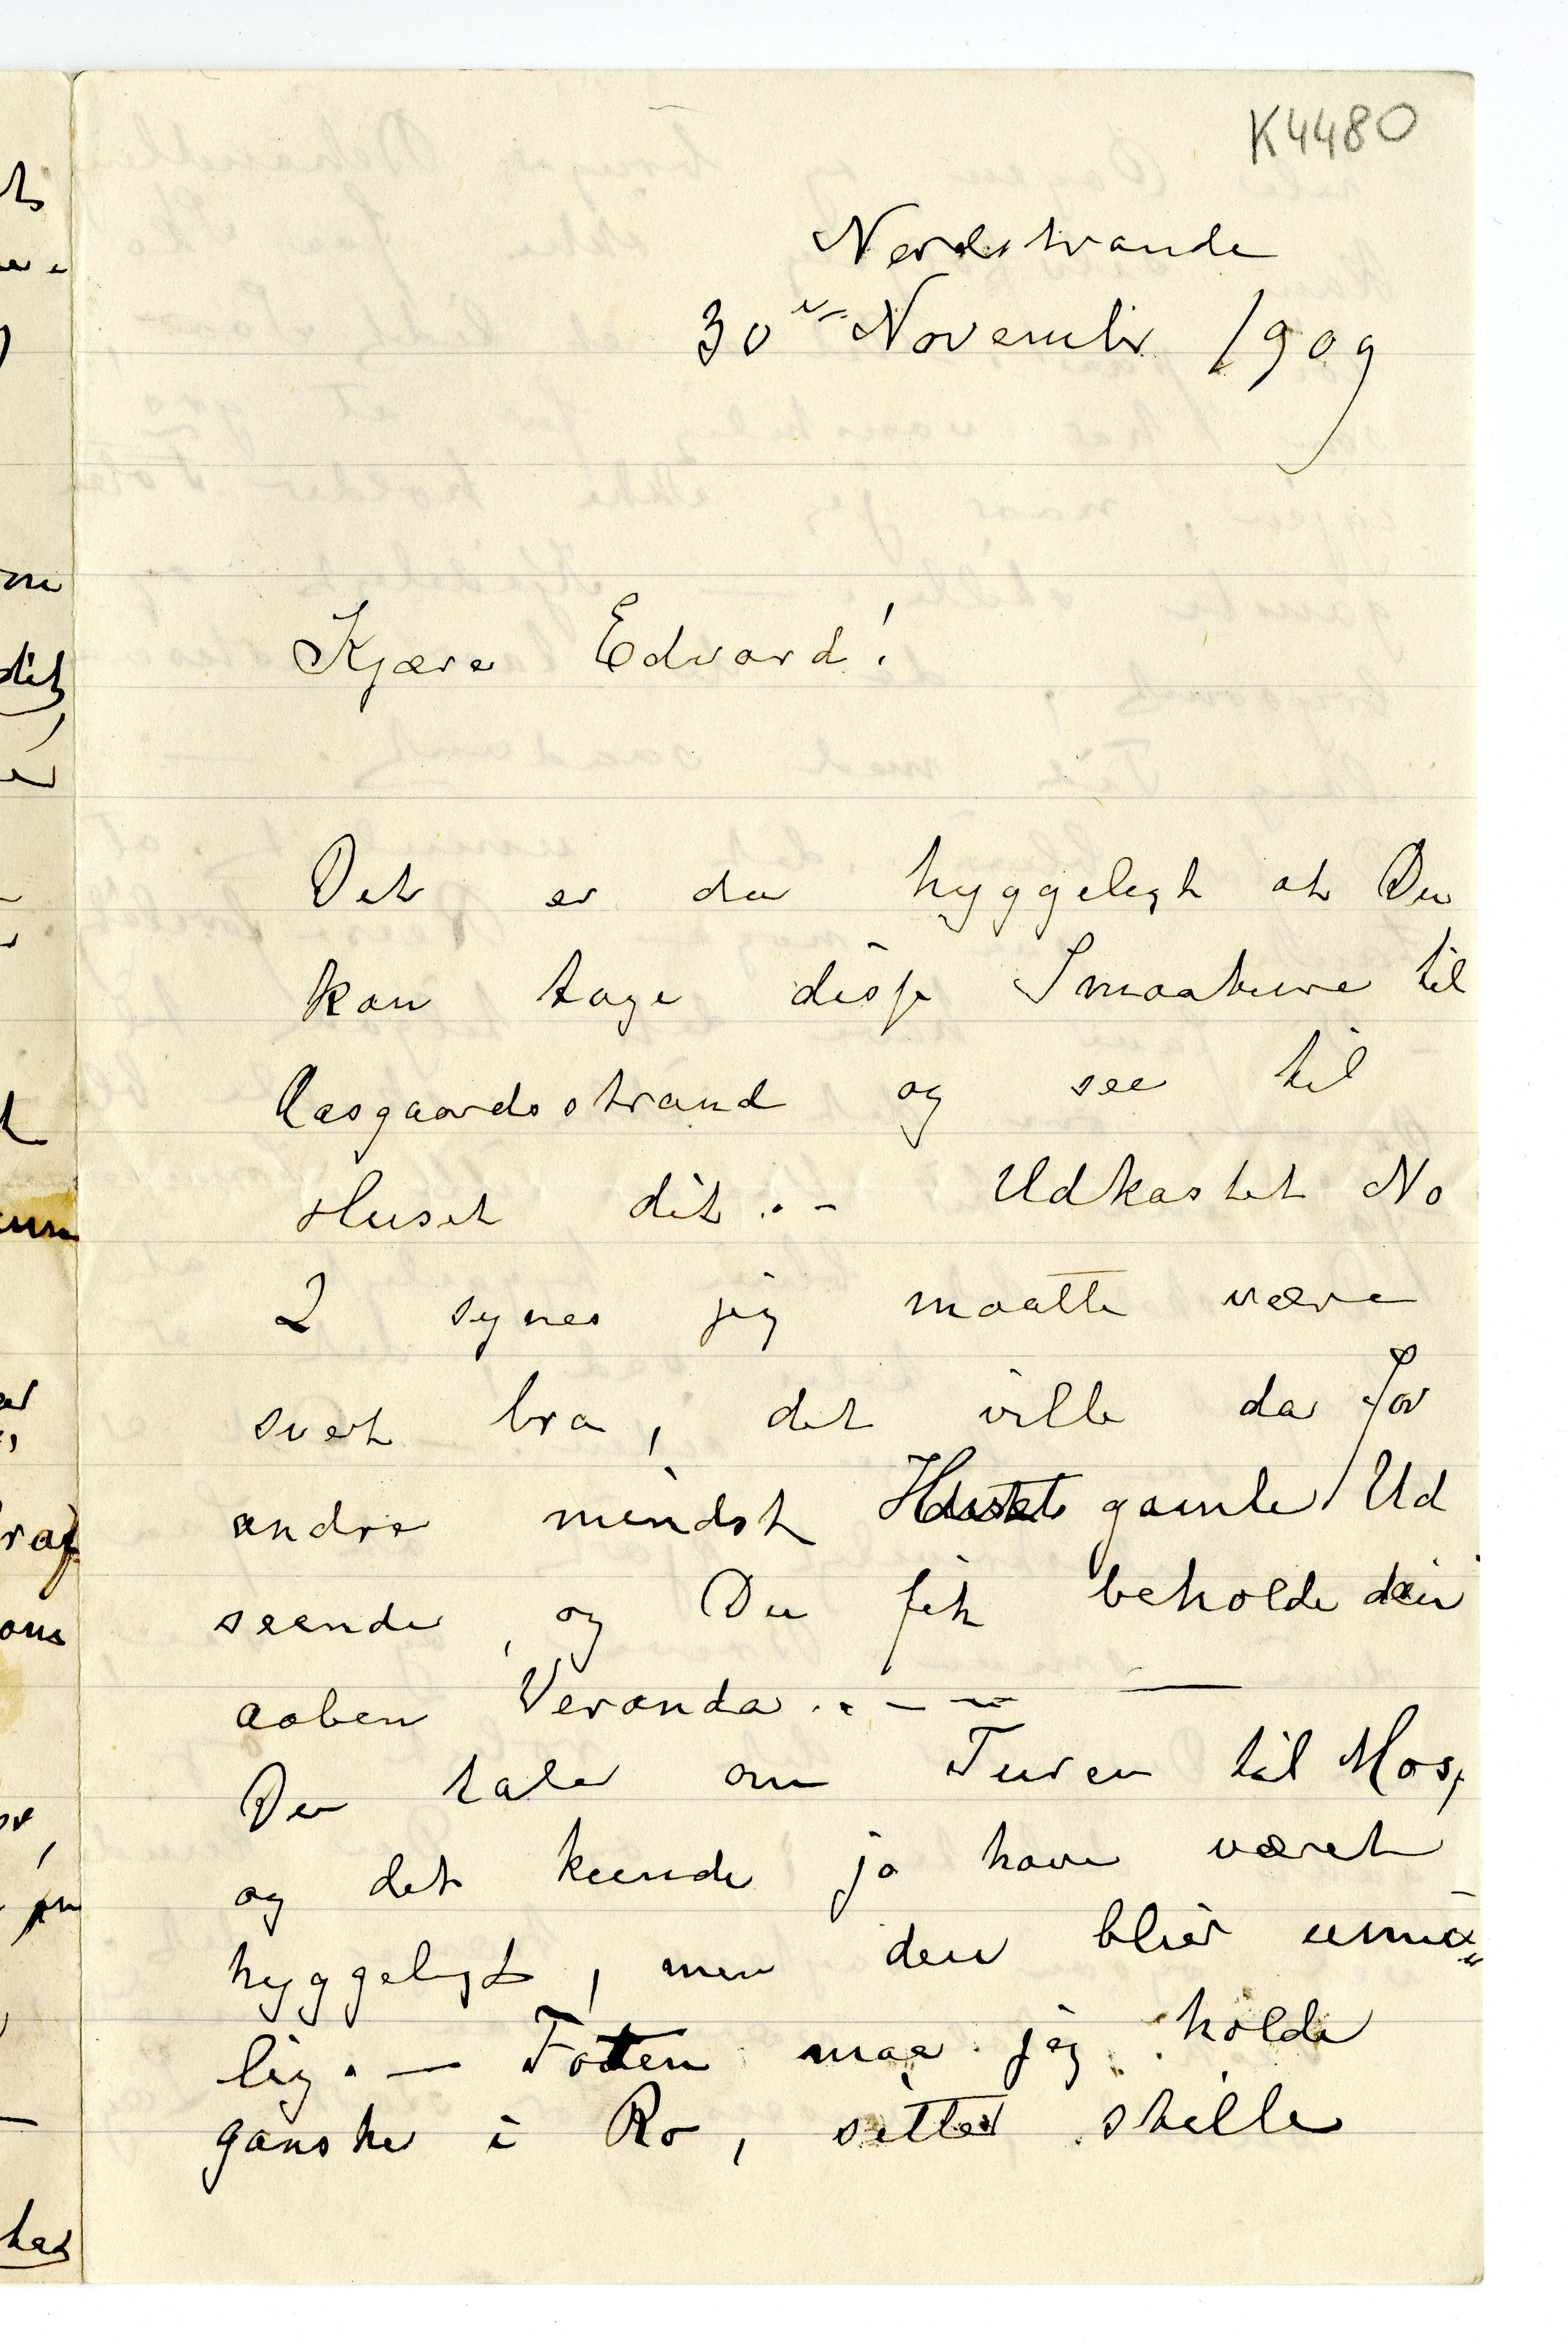 K4480
Nordstrande
30te November 1909
Kjære Edvard!
Det er da hyggeligt at Du
kan tage disse Smaature til
Aasgaardsstrand og see til
Huset dit. - Udkastet No
2 synes jeg maatte være
svert bra, det ville da for
andre mindst Husets gamle Ud
seende, og Du fik beholde din
aaben Veranda. - - -
Du taler om Turen til Moss,
og det kunde jo have været
hyggeligt, men den bliver umu
lig. - Foten maa jeg holde
ganske i Ro, sitter stille